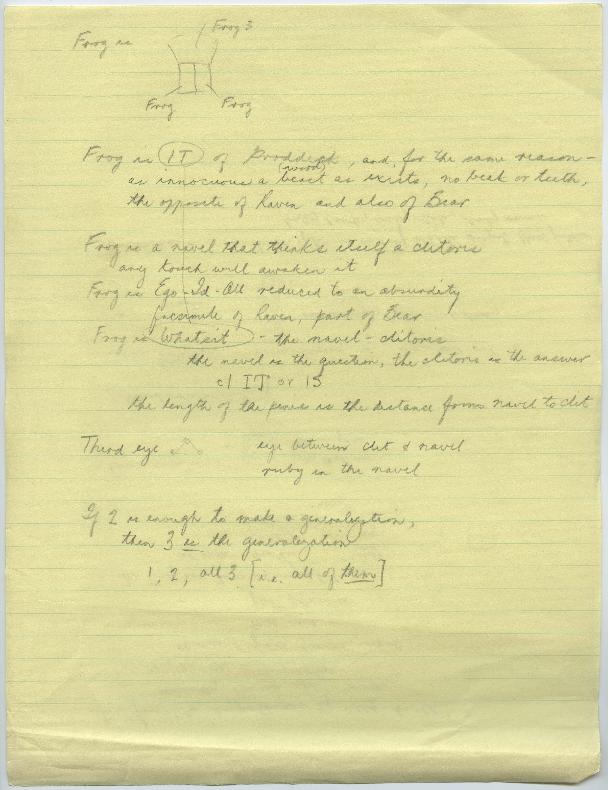 Frog 3
Frog is
Frog Frog
Frog is IT of Proddeck, and, for the same reason -
(word)
as innocuous a beast as exists, no beak or teeth,
the opposite of Raven and also of Bear
Frog is a navel that thinks itself a clitoris
any touch will awaken it
Frog is Ego-Id-All reduced to an absurdity
facsimile of Raven, part of Bear
Frog is Whatsit - the navel-clitoris
the navel is the question, the clitoris is the answer
cl IT or IS
the length of the penis is the distance from navel to clit
Third eye eye between clit & navel
ruby in the navel
If 2 is enough to make a generalization,
then 3 is the generalization
1, 2, all 3 [i.e. all of them]